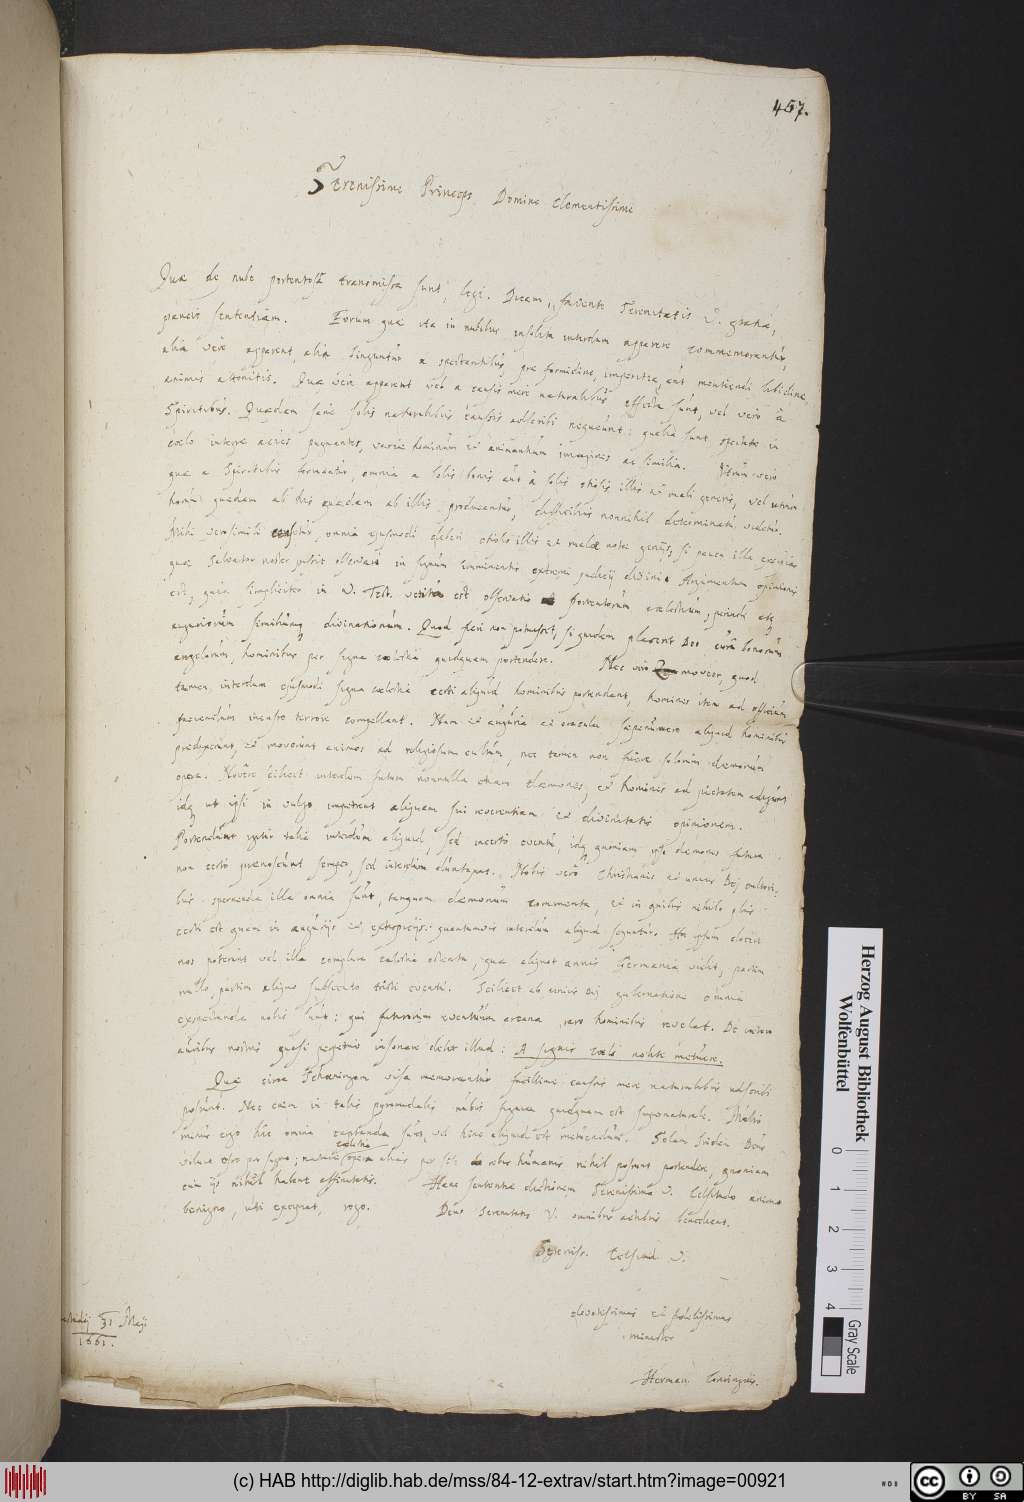 457.
Serenissime Princeps Domine Clementissime
Quae de nube portentosa transmissa sunt, legi. Dicam, favente Serenitatis V. gratia,
paucis sententiam. Eorum quae ita in nubibus insolita interdum apparere commemorantur,
alia vere apparent, alia finguntur a spectantibus, prae formidine, imperitia, aut mentiendi libidine,
animis attonitis. Quae vere apparent vel a causis mere naturalibus effecta sunt, vel vero a
Spiritibus. Quaedam sane solis naturalibus caussis adscribi nequeunt: qualia sunt, spectatae in
coelo integrae acies pugnantes, variae hominum et animantium imagines ac similia. Utrum vero
quae a Spiritibus formantur, omnia a solis bonis aut a solis otiosis illis et mali generis, vel utrum
horum quaedam ab his quaedam ab illis producantur, difficilius nonnihil determinatu videtur.
Mihi verosimile censetur, omnia ejusmodi deberi otiosis illis et malae notae geniis, si pauca illa excipias
quae Salvator noster jussit observari in signum imminentis extremi judicij divini. Argumentum opinionis
est, quia simpliciter in V. Test. vetita est observatio portentorum caelestium, perinde atq
auguriorum similiumq divinationum. Quod fieri non potuisset, siquidem placerit Deo cura bonorum
angelorum, hominibus per signa coelestia quidquam portendere. Nec vero moveor, quod
tamen interdum ejusmodi signa coelestia certi aliquid hominibus portendant, homines item ad officium
faciendum incusso terrore compellant. Nam et auguria et oracula saepenumero aliquid hominibus
praedixerunt, et moverunt animos ad religiosum cultum, nec tamen non fuere solorum daemonum
opera. Novere scilicet interdum futura nonnulla etiam daemones, et homines ad pietatem adigunt
idq ut ipsi in vulgo impetrent aliquam sui reverentiam et divinitatis opinionem.
Portendunt igitur talia interdum aliquid, sed incerto eventu, idq quoniam ipsi daemones futura
non certo praenoscunt semper, sed interdum duntaxat. Nobis vero Christianis et unius Dei cultori-
bus spernenda illa omnia sunt, tanquam daemonum commenta, et in quibus nihilo plus
certi est quam in augurijs et extispicijs: quantumvis interdum aliquid sequatur. Hoc ipsum docere
nos poterunt vel illa complura caelestia ostenta, quae aliquot annis Germania vidit, partim
nullo, partim aliquo subsecuto tristi eventu. Scilicet ab unius Dei gubernatione omnia
exspectanda nobis sunt: qui futurorum eventuum arcana raro hominibus revelat. De caetero
auribus nostris quasi perpetuo insonare debet illud: A signis coeli nolite metuere.
Quae circa Schoeningam visa memorantur facillime caussis mere naturalibus adscribi
possunt. Nec enim in talis pyramidalis nubis figura quidquam est supernaturale. Multo
minus ergo hic omnia captanda sunt, vel hinc aliquid est metuendum. Solam Iridem Deus
voluit esse pro signo; naturae coelestia opera alias per se de rebus humanis nihil possunt portendere, quoniam
cum ijs nihil habent affinitatis. Hanc sententiae dictionem Serenissima V. Celsitudo animo
benigno, uti excipiat, rogo. Deus Serenitatis V. omnibus actibus benedicat.
Sereniss. Celsitud. V.
devotissimus et fidelissimus
minister
Herman Conringius.
31 Maji
1661.
Herzog August Bibliothek
Wolfenbüttel
0 1 2 3 4
Gray Scale
(c) HAB http://diglib.hab.de/mss/84-12-extrav/start.htm?image=00921
WDB
cc BY SA